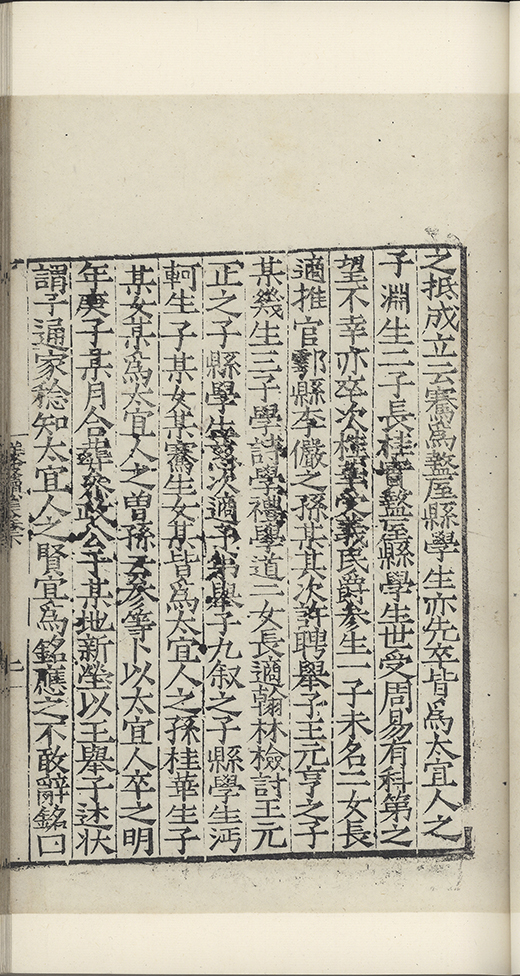 之抵成立云騫爲盩厔縣學生亦先卒皆爲太宜人之
子淵生二子長桂寶盩厔縣學生世受周易有科第之
望不幸亦卒次桂華受義民爵參生一子未名二女長
適推官鄠縣李儼之孫某其次許聘舉子王元亨之子
某幾生三子學詩學禮學道二女長適翰林檢討王元
正之子縣學生次適予弟舉子九叙之子縣學生沔
軻生子某女某騫生女某皆爲太宜人之孫桂華生子
某女某爲太宜人之曾孫云參等卜以太宜人卒之明
年庚子某月合葬叅政公于某地新塋以王舉子述状
謂予通家稔知太宜人之賢宜爲銘應之不敢辭銘曰